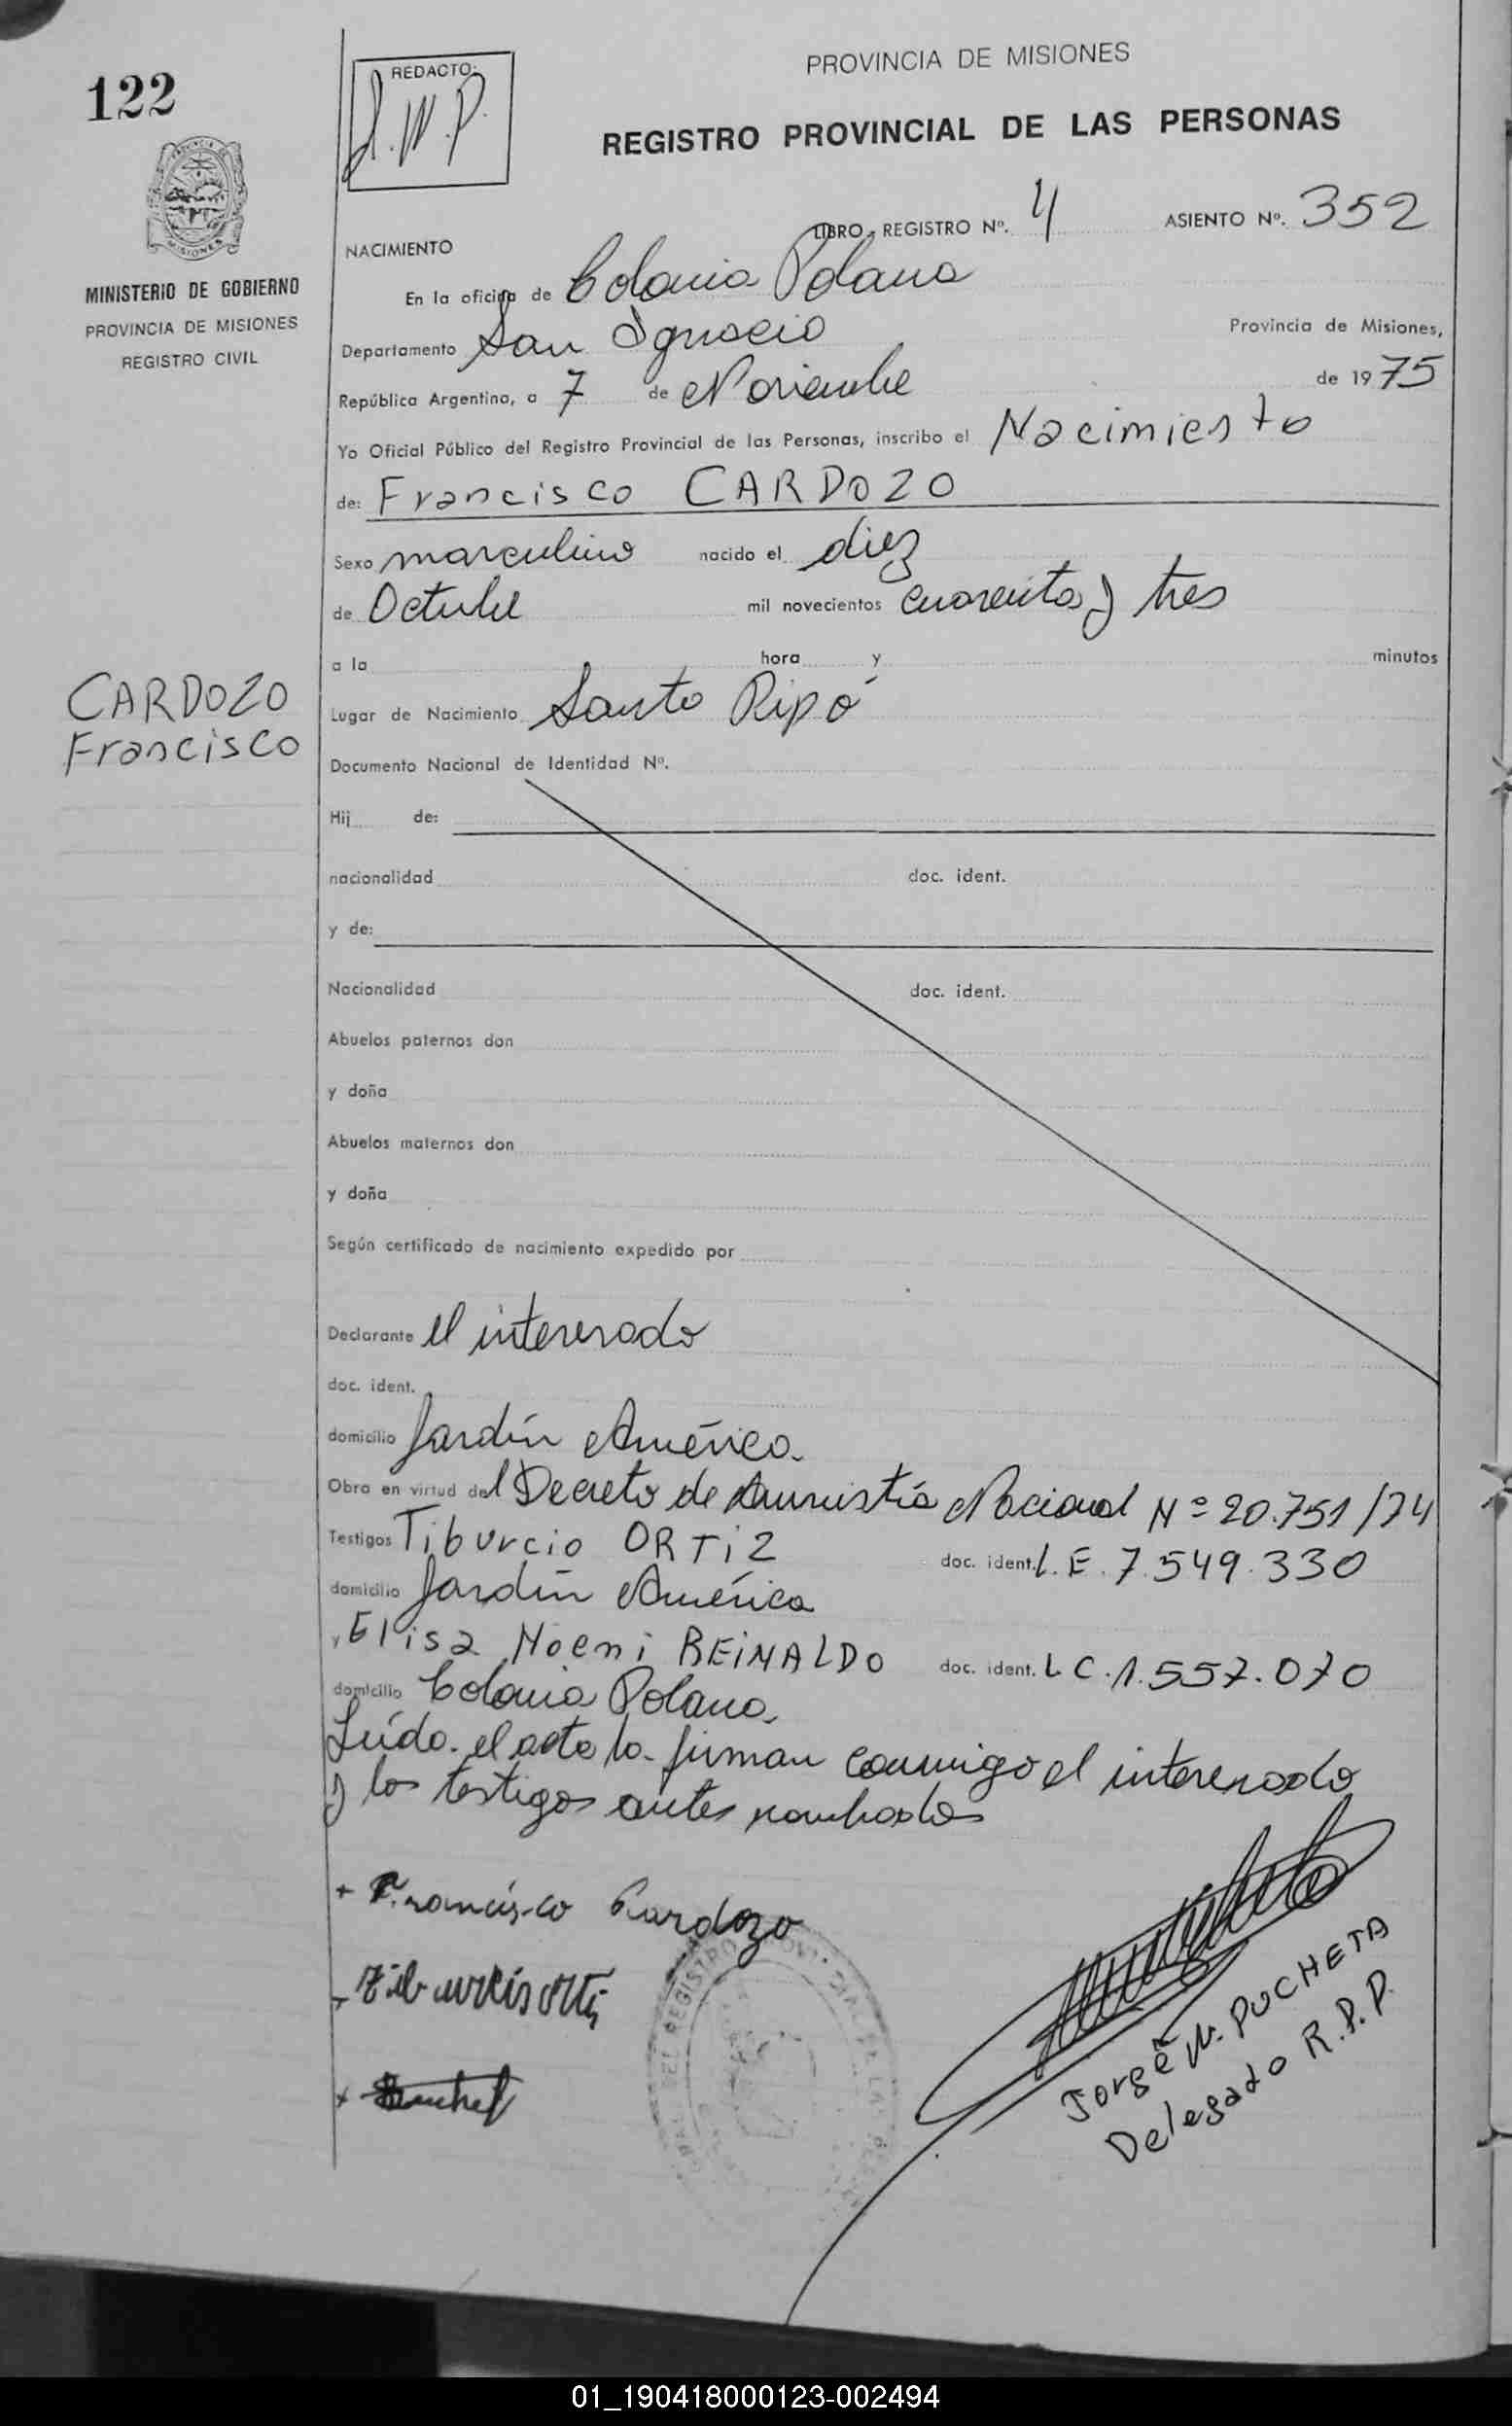 122
REDACTO:
J.W.P.
PROVINCIA DE MISIONES
REGISTRO PROVINCIAL DE LAS PERSONAS
MISIONES
MINISTERIO DE GOBIERNO
PROVINCIA DE MISIONES
REGISTRO CIVIL
LIBRO - REGISTRO Nº. 4 ASIENTO Nº. 352
NACIMIENTO
En la oficina de Colonia Polana
Departamento San Ignacio Provincia de Misiones,
República Argentina, a 7 de Noviembre de 1975
Yo Oficial Público del Registro Provincial de las Personas, inscribo el Nacimiento
de: Francisco CARDOZO
Sexo masculino nacido el diez
de Octubre mil novecientos cuarenta y tres
a la hora y minutos
CARDOZO
Francisco
Lugar de Nacimiento Santo Pipó
Documento Nacional de Identidad Nº.
Hij de:
nacionalidad doc. ident.
y de:
Nacionalidad doc. ident.
Abuelos paternos don
y doña
Abuelos maternos don
y doña
Según certificado de nacimiento expedido por
Declarante el interesado
doc. ident.
domicilio Jardín América.
Obra en virtud del Decreto de Amnistía Nacional Nº 20.751/74
Testigos Tiburcio ORTiZ doc. ident. L.E. 7.549.330
domicilio Jardín América
y Elisa Noemi REiNALDO doc. ident. L C. 1.557.070
domicilio Colonia Polana.
Leído el acta la firman conmigo el interesado
y los testigos antes nombrados
+ Francisco Cardozo
Tiburcio Orti
Jorge W. PUCHETA
Delegado R.P.P.
01_190418000123-002494